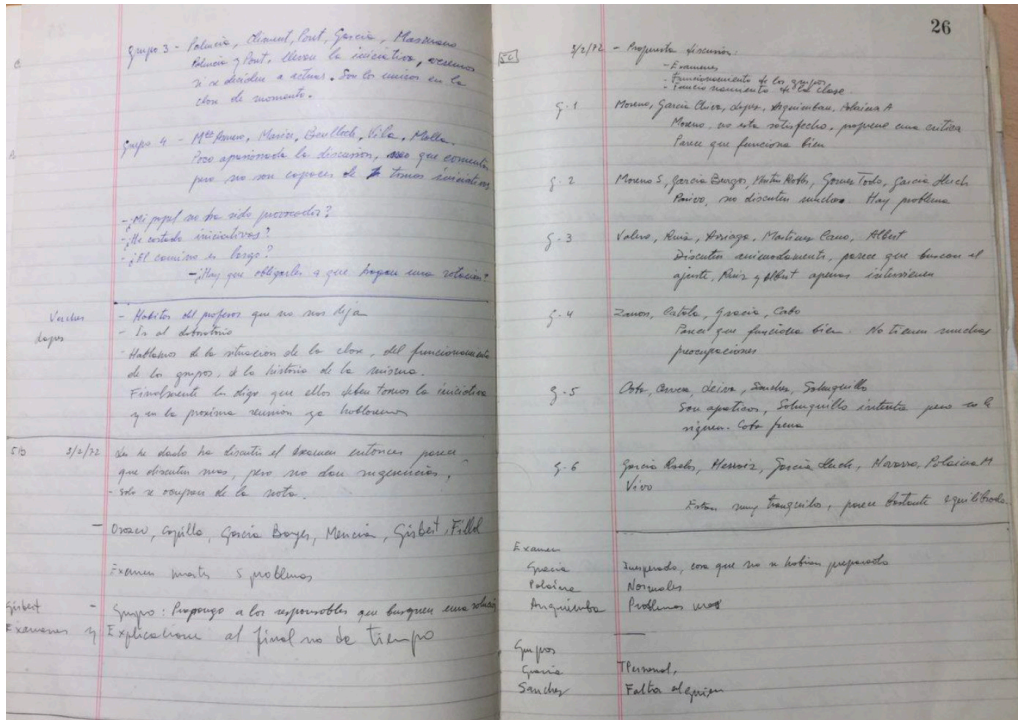 Grupo 3 - Palencia, Climent, Pont, García, Manzanaro
Palencia y Pont. llevan la iniciativa, veremos
si se deciden a actuar. Son los unicos en la
clase de momento.
grupo 4 - Mª Amparo, Marisa, Vila, Molla.
Poco apasionada la discusion, que comentan
pero no son capaces de tomar iniciativas
- ¿Mi papel no ha sido provocador?
- ¿He cortado iniciativas?
- ¿El camino es largo?
- ¿Hay que obligarles a que hagan una votacion?
- Habitos del profesor que no nos dejan
- Ir al laboratorio
- Hablamos de la situacion de la clase, del funcionamiento
de los grupos, de la historia de la misma.
Finalmente les digo que ellos deben tomar la iniciativa
y en la proxima reunion ya hablaremos
5B 3/2/72 Les he dado ha discutir el examen entonces parece
que discuten mas, pero no dan sugerencias,
- solo se ocupan de la nota.
- Orozco, Capilla, García Borges, Mencian, Gisbert, Fillol
Examen 5 problemas
Gisbert - Grupo: Propongo a los responsables que busquen una
Examenes y Explicacion al final no da tiempo
26
5C 3/2/72 - Propuesta discusion:
- Examenes
- Funcionamiento de los grupos
- Funcionamiento de la clase.
g. 1 Moreno, García Chova, López, Polaina A
Moreno, no esta satisfecho, propone una critica
Parece que funciona bien
g. 2 Moreno S, García Burgos, García Lluch
no discuten mucho. Hay problema
g. 3 Ruiz, Arriaga, Martinez Cano, Albert
Discuten animadamente, parece que buscan el
ajuste, Ruiz y Albert apenas intervienen
g. 4 Zanon, Catala, Gracia, Cabo
Parece que funciona bien. No tienen muchas
preocupaciones
g. 5 Cota, Leiva, Sanchez, Salmquillo
Son apaticos, intenta pero no le
siguen. Cota frena
g. 6 García Herraiz, García Lluch, Navarro, Polaina M
Vivo
Estan muy tranquilos, parece bastante equilibrado
Examen
Gracia Inesperado, cosa que no se habian preparado
Polaina Normales
Problemas mas
Grupos
Gracia Personal.
Sanchez Falta alguien